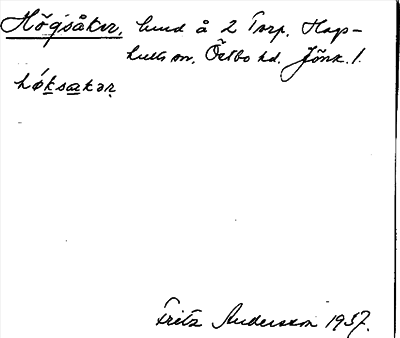 Högsåker, lund å 2 Torp. Hap-
hults sn, Östbo hd. Jönk. l.
høksakər
Fritz Andersson 1937.